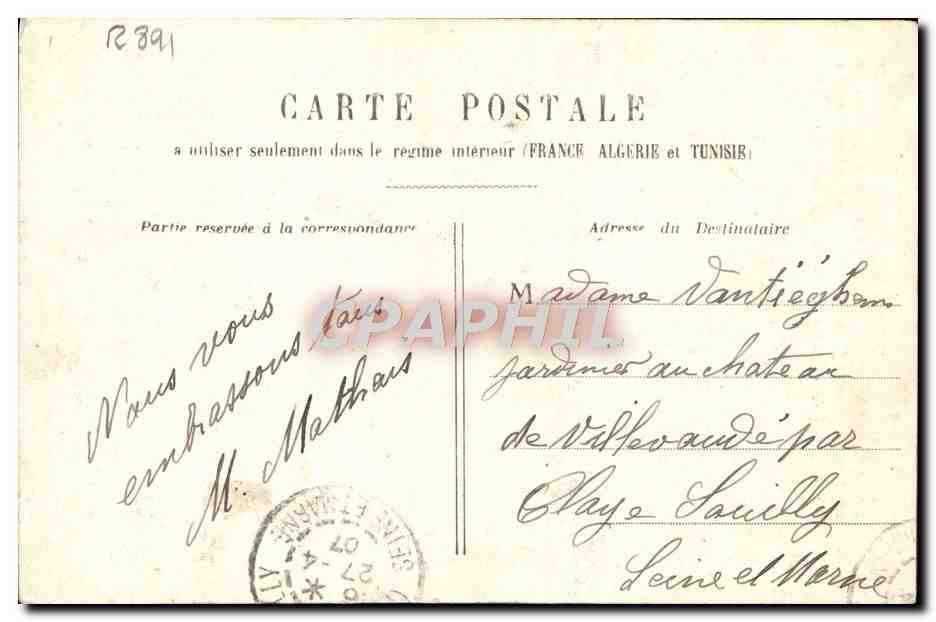 R 891
CARTE POSTALE
a utiliser seulement dans le régime intérieur (FRANCE ALGERIE et TUNISIE)
Partie reservée à la correspondance
Adresse du Destinataire
Nous vous
embrassons tous
M. Mathais
CPAPHIL
Madame Vantiéghem
jardinier au chateau
de Villevaudé par
Claye Souilly
Seine et Marne
SEINE ET MARNE
27 -4
07